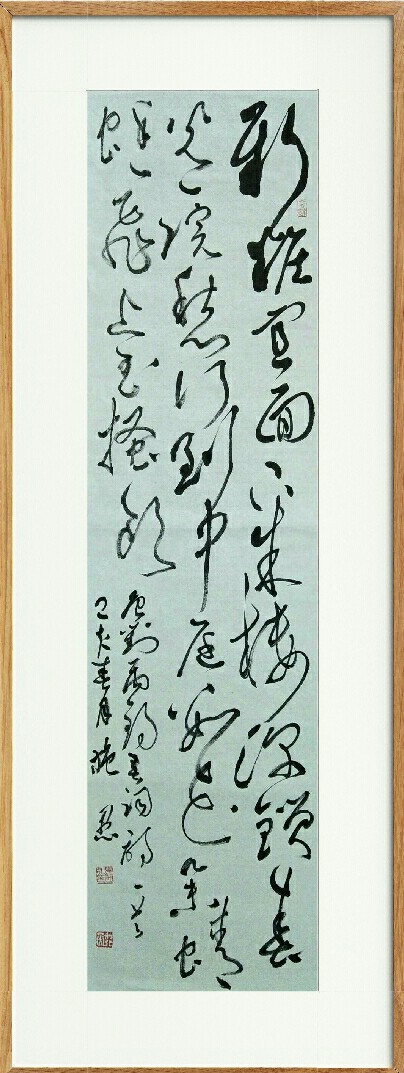 新粧宜面下朱樓深鎖春
光一院愁行到中庭數花朵蜻
蜓飛上玉搔頭
唐劉禹錫春詞詩一首
春月施